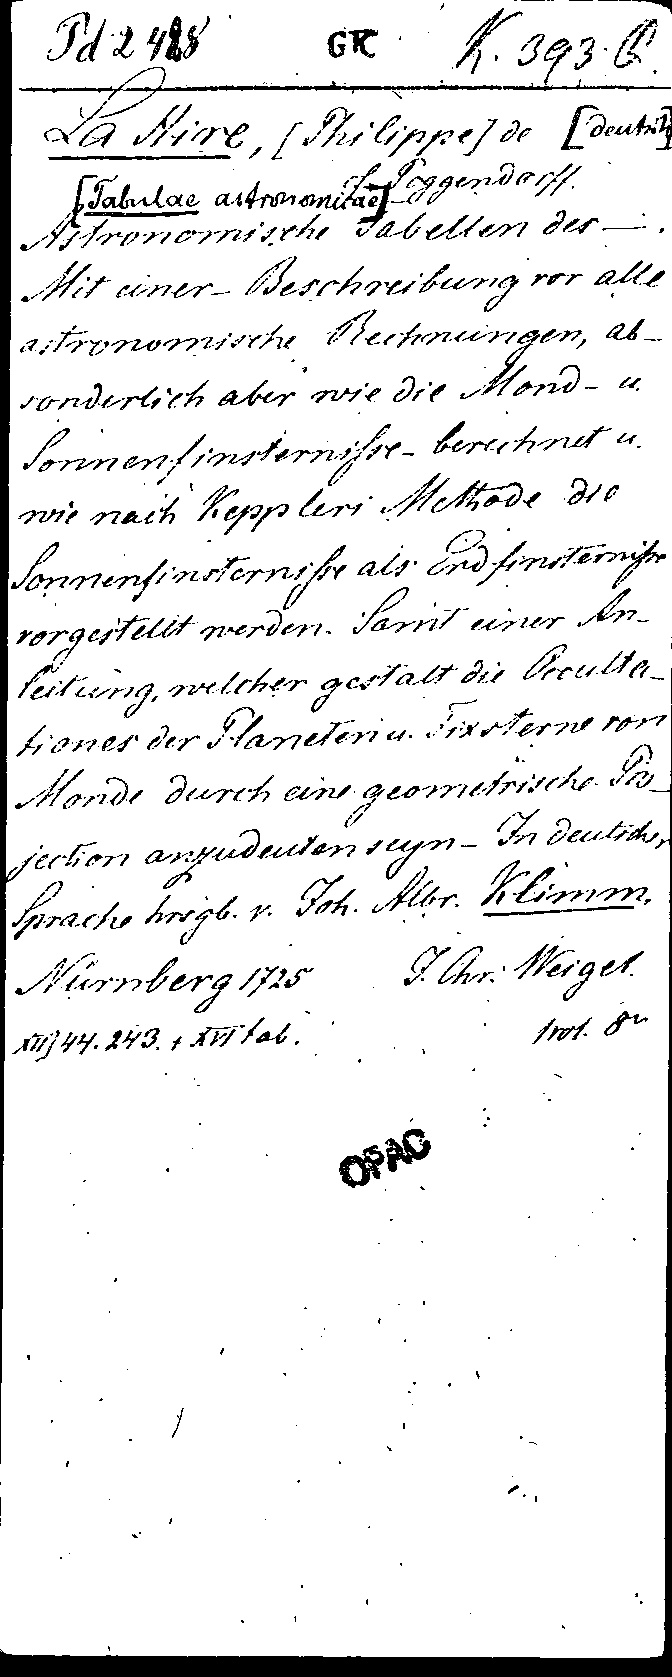 Pd 2 488 GK K. 393. G.
La Hire, [Philippe] de [deutsch]
J. Poggendorff.
[Tabulae astronomicae]
Astronomische Tabellen des —.
Mit einer Beschreibung vor alle
astronomische Rechnungen, ab-
sonderlich aber wie die Mond- u.
Sonnenfinsternisse berechnet u.
wie nach Keppleri Methode die
Sonnenfinsternisse als Erdfinsternisse
vorgestellt werden. Samt einer An-
leitung, welcher gestalt die Occulta-
tiones der Planeten u. Fixsterne von
Monde durch eine geometrische Pro-
jection anzudeuten seyn – In deutscher
Sprache hrsgb. v. Joh. Albr. Klimm.
Nürnberg 1725 J. Chr. Weigel.
XII, 44. 243. + XVI tab. 8°
OPAC